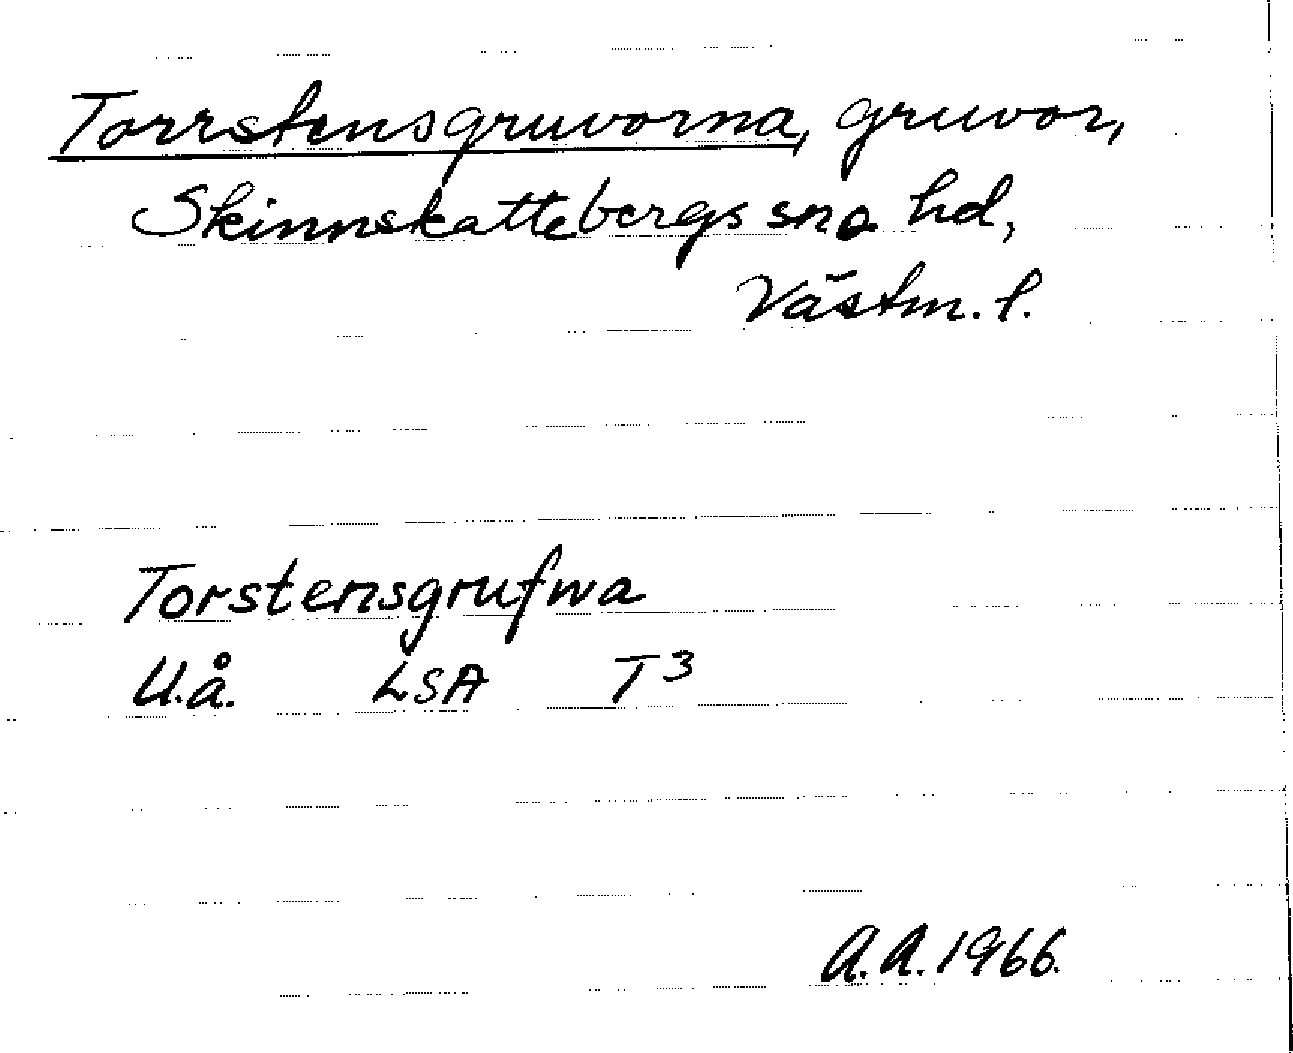 Torrstensgruvorna, gruvor,
Skinnskattebergs sn o hd,
Västm. l.
Torstensgrufwa
U.å. LSA T3
A.A. 1966.